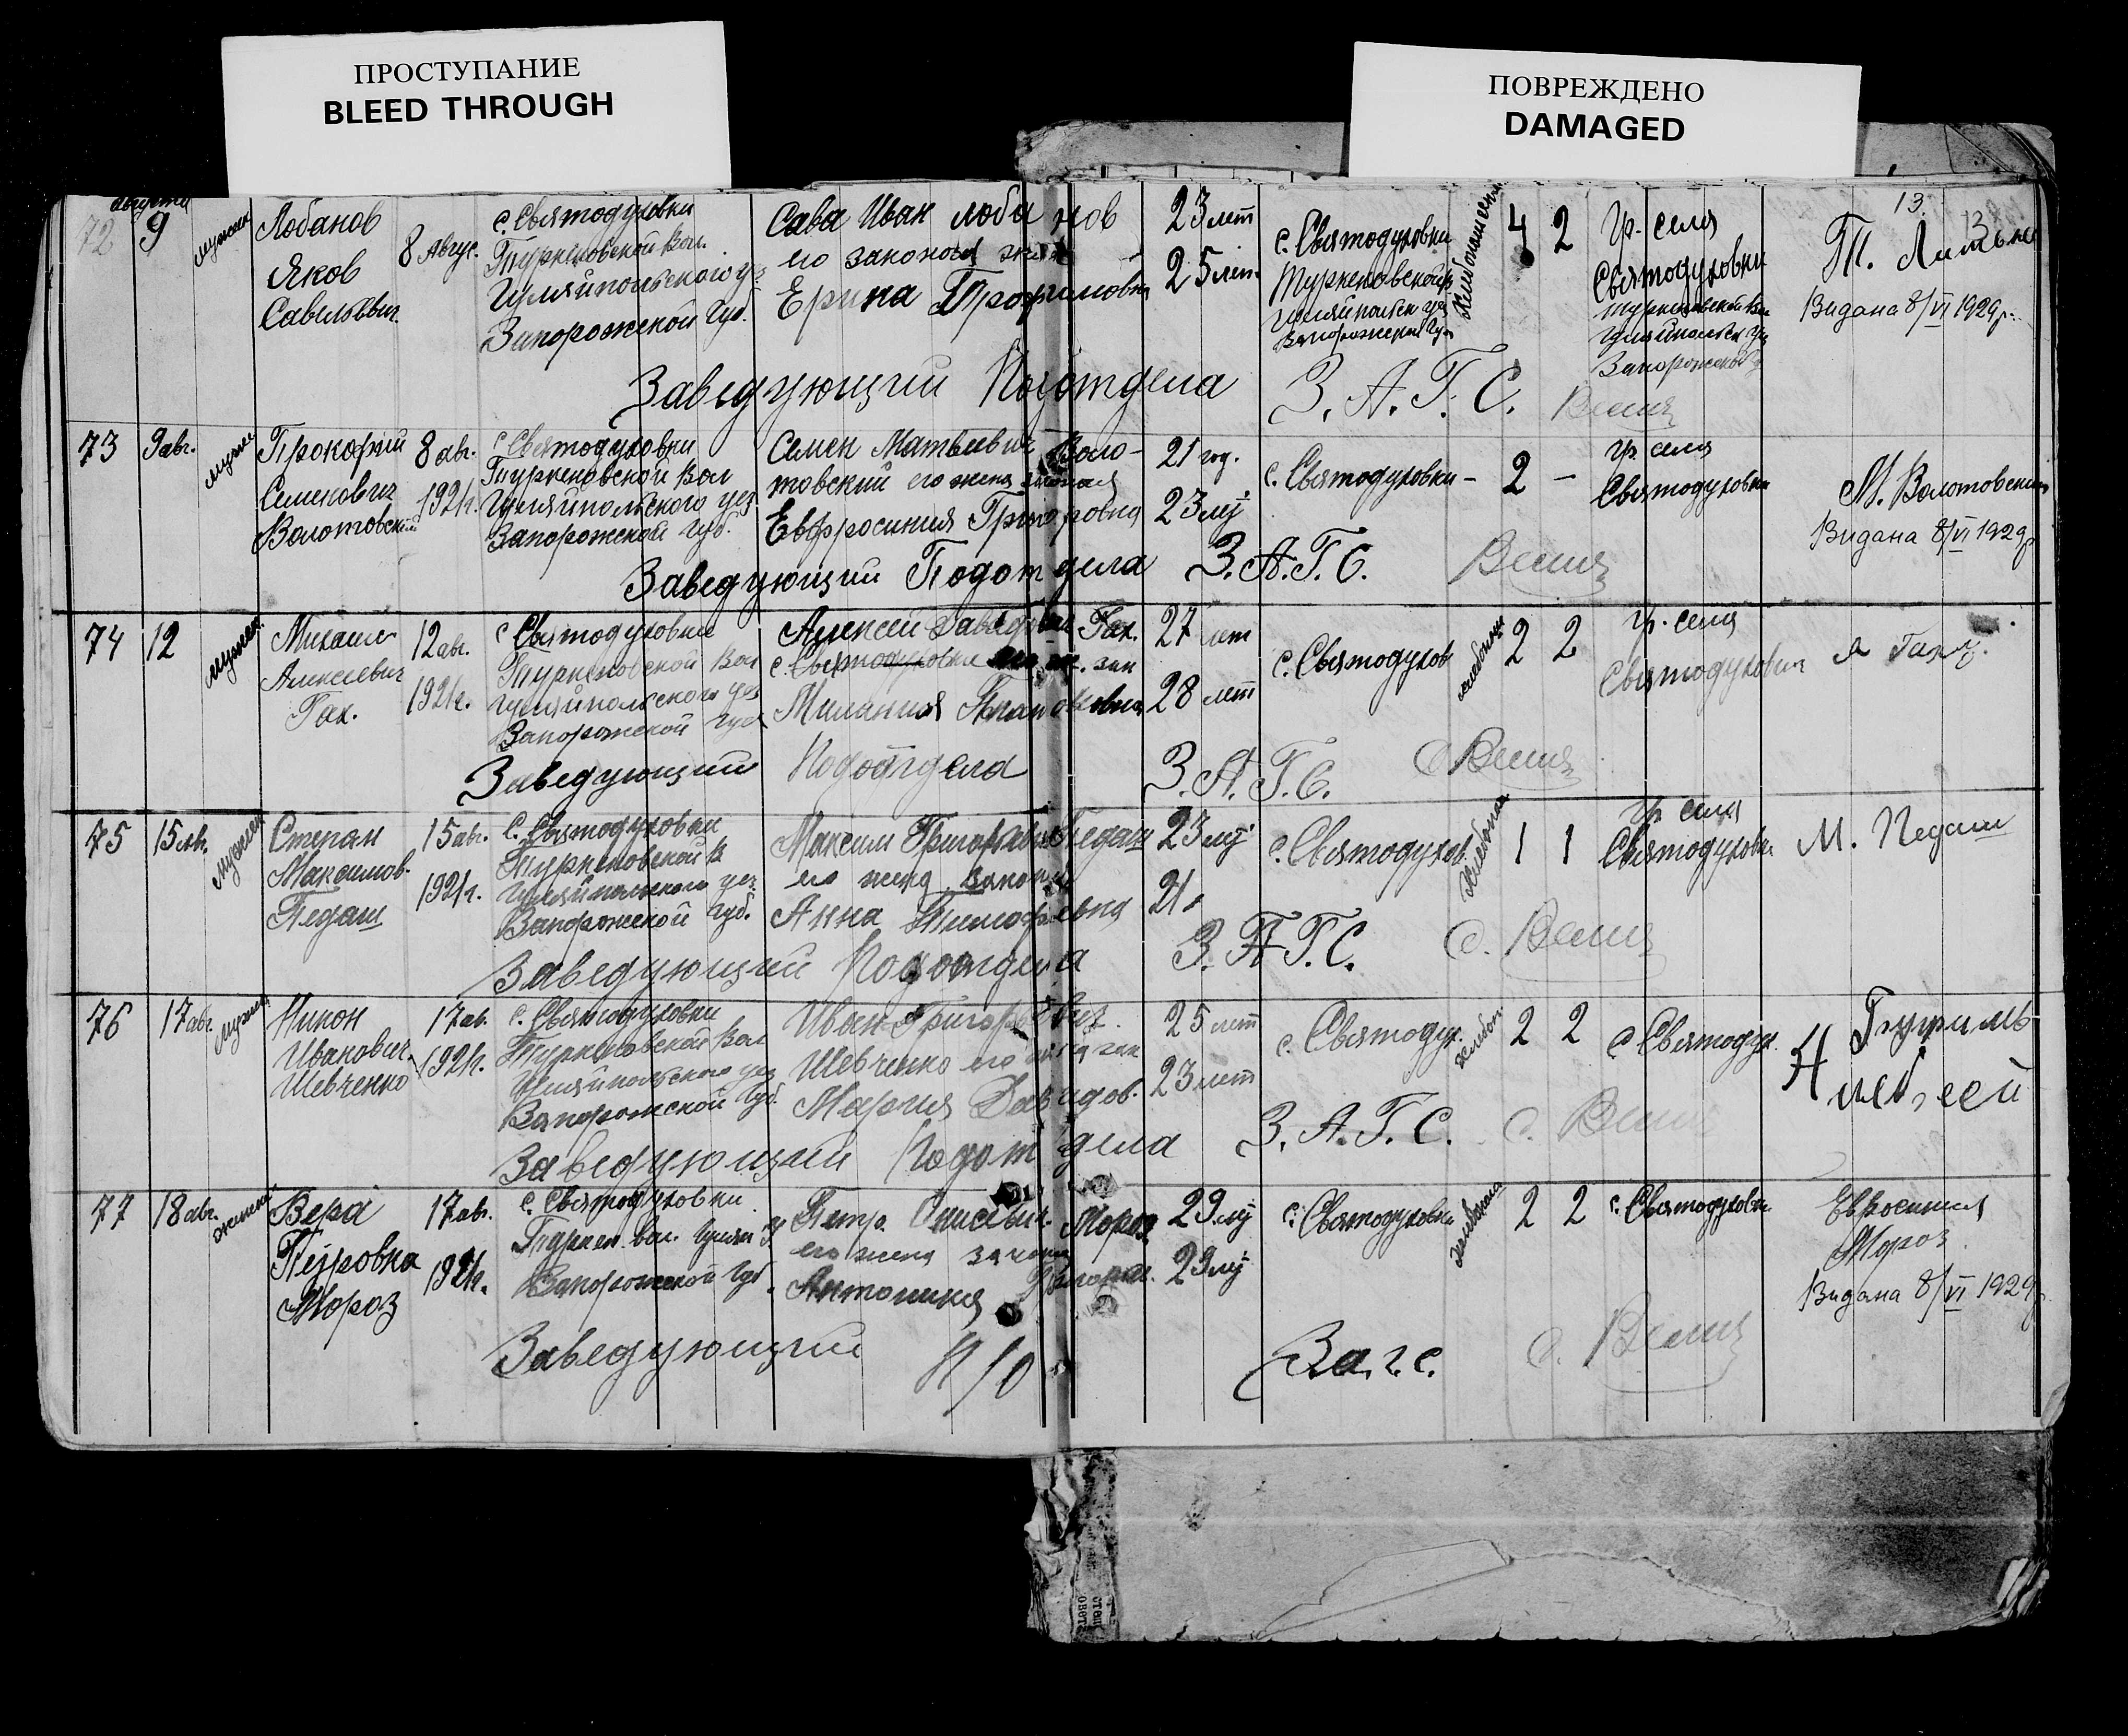 ПРОСТУПАНИЕ
BLEED THROUGH
ПОВРЕЖДЕНО
DAMAGED
13.
августа
72 9 мужск Лобанов Яков Савельевич. 8 Авгус.
с. Святодуховки
Туркеновской Вол.
Гуляйпольского у.
Запорожской Губ.
Сава Иван Лобанов 23 лет
его законная
Ерина Трофимовна 25 лет.
с. Святодуховки
Туркеновской
Гуляйпольск уез
Запорожской Гу
4 2
Гр. села
Святодуховки
Туркеновской Во
Гуляйпольск у
Запорожской
Т.
Видана 8/VI 1929 р.
Заведующий Подотдела З. А. Г. С.
73 9 авг. мужс Прокофий Семенович Волотовский 8 авг. 1921 г.
с Святодуховки
Туркеновской Вол
Гуляйпольского уез
Запорожской Губ.
Семен Матвеевич Воло-
товский его жена законая
Евфросиния Григоровна
21 год.
23 лц
с. Святодуховки - 2 -
Гр села
Святодуховки
М. Волотовский
Видана 8/VI 1929 р
Заведующий Подотдела З. А. Г. С.
74 12 мужск. Михаил Алексеевич Гах. 12 авг. 1921 г.
с Святодуховки
Туркеновской Вол
Гуляйпольского уез
Запорожской Губ
Алексей Даведович Гах. 27 лет
с. Святодуховки зак
Милания 28 лет
с. Святодухов 2 2
Гр. села
Святодуховки
Заведующий Подотдела З. А. Г. С.
75 15 авг. мужск Степан Максимов. Педаш 15 авг. 1921 г.
с. Святодуховки
Туркеновской В
Гуляйпольского уез.
Запорожской Губ.
Максим Григорьевич Педаш 23 лц
его жена законая
Анна Тимофеевна 21
с. Святодухов. хлебопа 1 1
Гр села
Святодуховки
М. Педаш
Заведующий Подотдела З. А. Г. С.
76 17 авг. мужск Никон Иванович Шевченко 17 ав. 1921 г.
с. Святодуховки
Туркеновской Вол
Гуляйпольского уез
Запорожской Губ.
Иван Григорьевич. 25 лет
Шевченко его жена зак
Мария Давидов. 23 лет
с. Святодух. хлебоп 2 2
с Святодух.
Заведующий Подотдела З. А. Г. С.
77 18 авг. женск Вера Петровна Мороз 17 авг. 1921 г.
с. Святодуховки
Туркен. вол. Гуляй У
Запорожской Губ.
Петр Онисевич. Мороз 29 лц
его жена закона
Антонина 29 лц
с. Святодуховки 2 2
с. Святодуховки
Евросиния
Мороз
Видана 8/VI 1929 р
Заведующий П/О Загс.